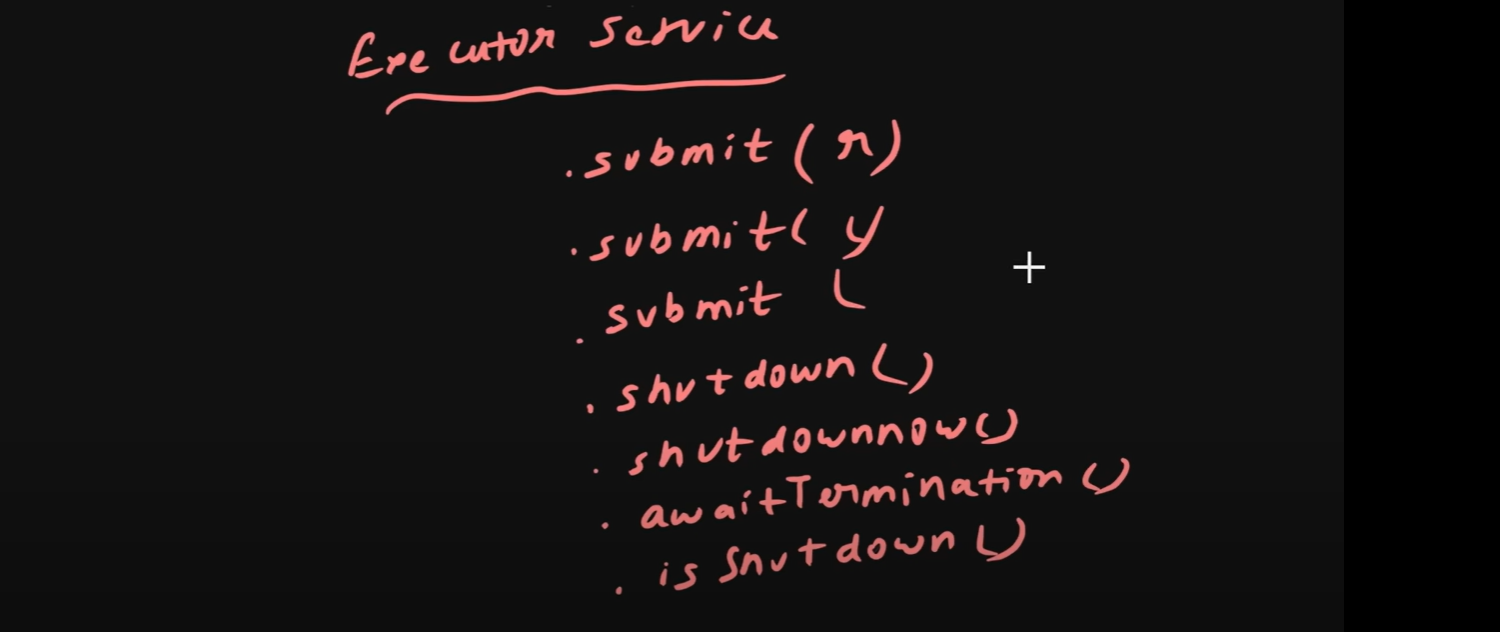 Executor Service
.submit(r)
.submit( y
.submit (
.shutdown()
.shutdownnow()
.awaitTermination()
.isShutdown()